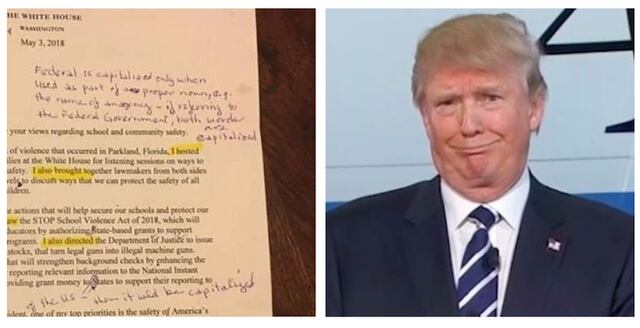 THE WHITE HOUSE
WASHINGTON
May 3, 2018
Federal is capitalized only when
used as part of a proper noun, e.g.
the name of an agency - if referring to
the Federal Government, both words
are
capitalized
your views regarding school and community safety.
of violence that occurred in Parkland, Florida, I hosted
lies at the White House for listening sessions on ways to
afety. I also brought together lawmakers from both sides
to discuss ways that we can protect the safety of all
ildren.
e actions that will help secure our schools and protect our
aw the STOP School Violence Act of 2018, which will
ducators by authorizing State-based grants to support
rograms. I also directed the Department of Justice to issue
stocks, that turn legal guns into illegal machine guns.
hat will strengthen background checks by enhancing the
reporting relevant information to the National Instant
oviding grant money to States to support their reporting to
of the US - then it would be capitalized
dent, one of my top priorities is the safety of America's